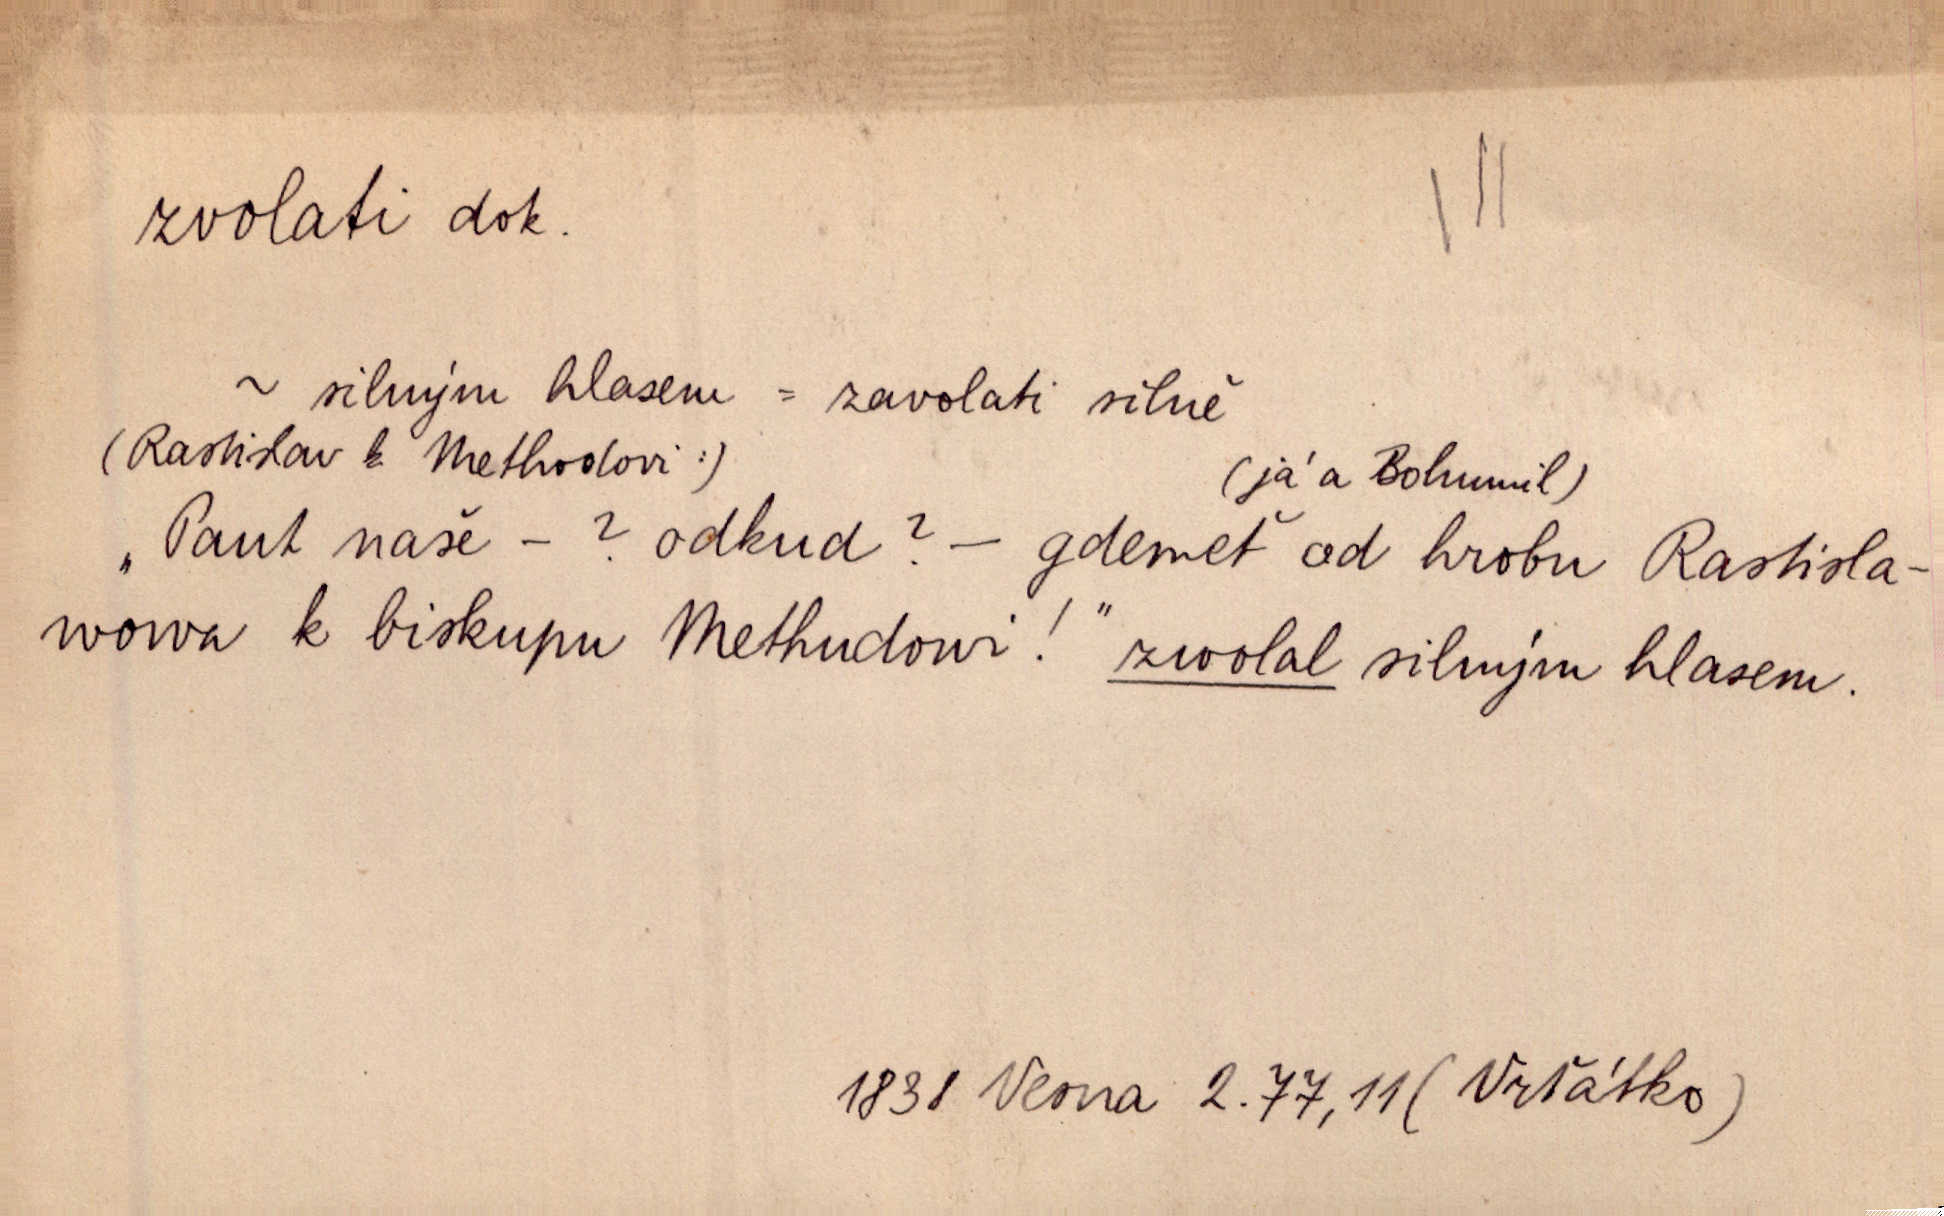 zvolati dok.
~ silným hlasem = zavolati silně
(Rastislav k Methodovi :)
(já a Bohumil)
„Paut naše – ? odkud ? – gdemeť od hrobu Rastisla-
wowa k biskupu Methudowi!" zwolal silným hlasem.
1838 Vesna 2.77,11 (Vrťátko)